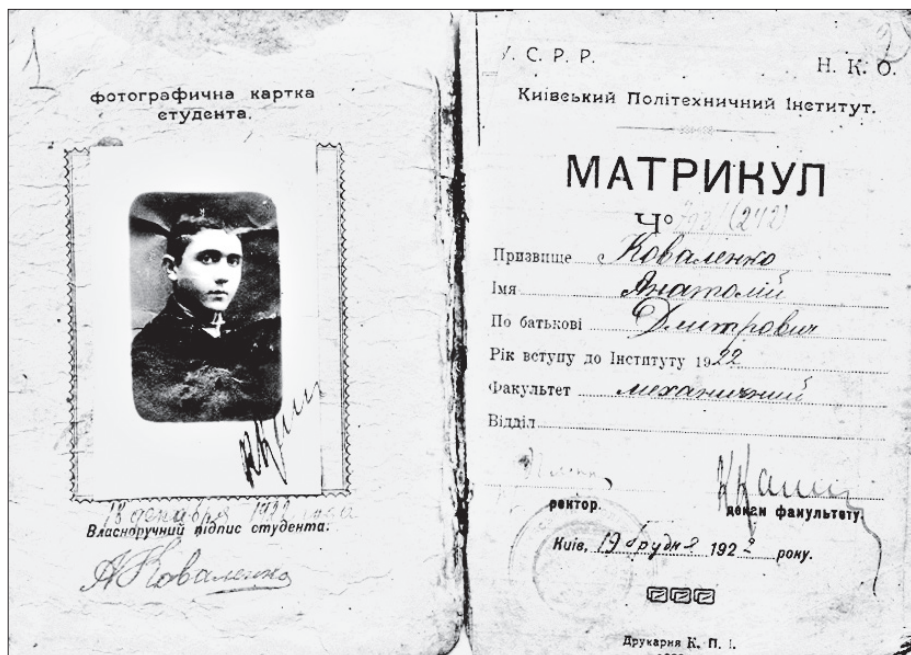 1
фотографична картка
студента.
18 декабря 1922 года
Власноручний підпис студента:
АКоваленко
2
С. Р. Р.
Н. К. О.
Київський Політехничний Інститут.
МАТРИКУЛ
Ч° (242)
Призвище Коваленко
Імя Анатолій
По батькові Дмитрович
Рік вступу до Інституту 1922
Факультет механичний
Відділ
ректор.
декан факультету.
Київ, 19 грудня 1922 року.
Друкарня К. П. І.